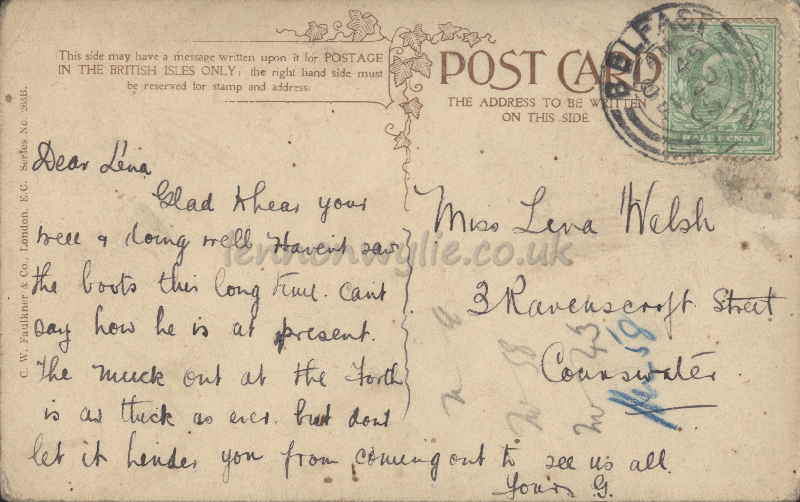 This side may have a message written upon it for POSTAGE
IN THE BRITISH ISLES ONLY; the right hand side must
be reserved for stamp and address.
POST CARD
THE ADDRESS TO BE WRITTEN
ON THIS SIDE.
BELFAST
HALFPENNY
C. W. Faulkner & Co., London, E.C. Series No. 263B.
Dear Lena
Glad to hear your
well & doing well Havent saw
the boots this long time. Cant
say how he is at present.
The muck out at the Forth
is as thick as ever. but dont
let it hender you from coming out to see us all.
Yours G.
Miss Lena Walsh
3 Ravenscroft Street
Connswater
58
43
58
lennonwylie.co.uk